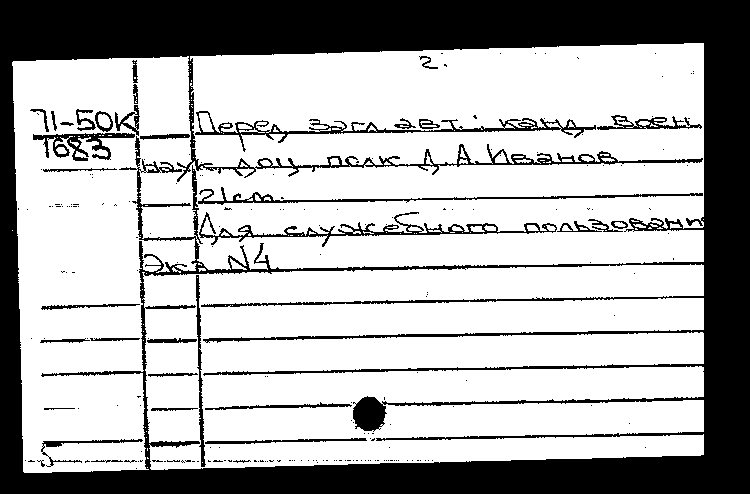 2.
71-50К Перед загл. авт.: канд. воен.
1683
наук, доц., полк. Д. А. Иванов
21 cm.
Для служебного пользовани
Экз. N4
5